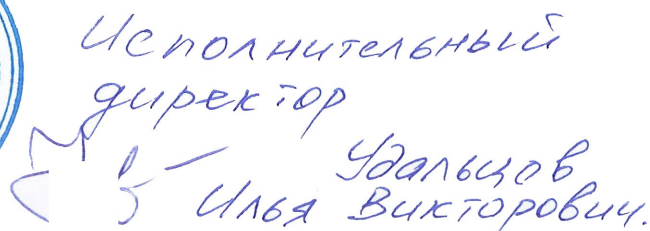 Исполнительный
директор
Удальцов
Илья Викторович.